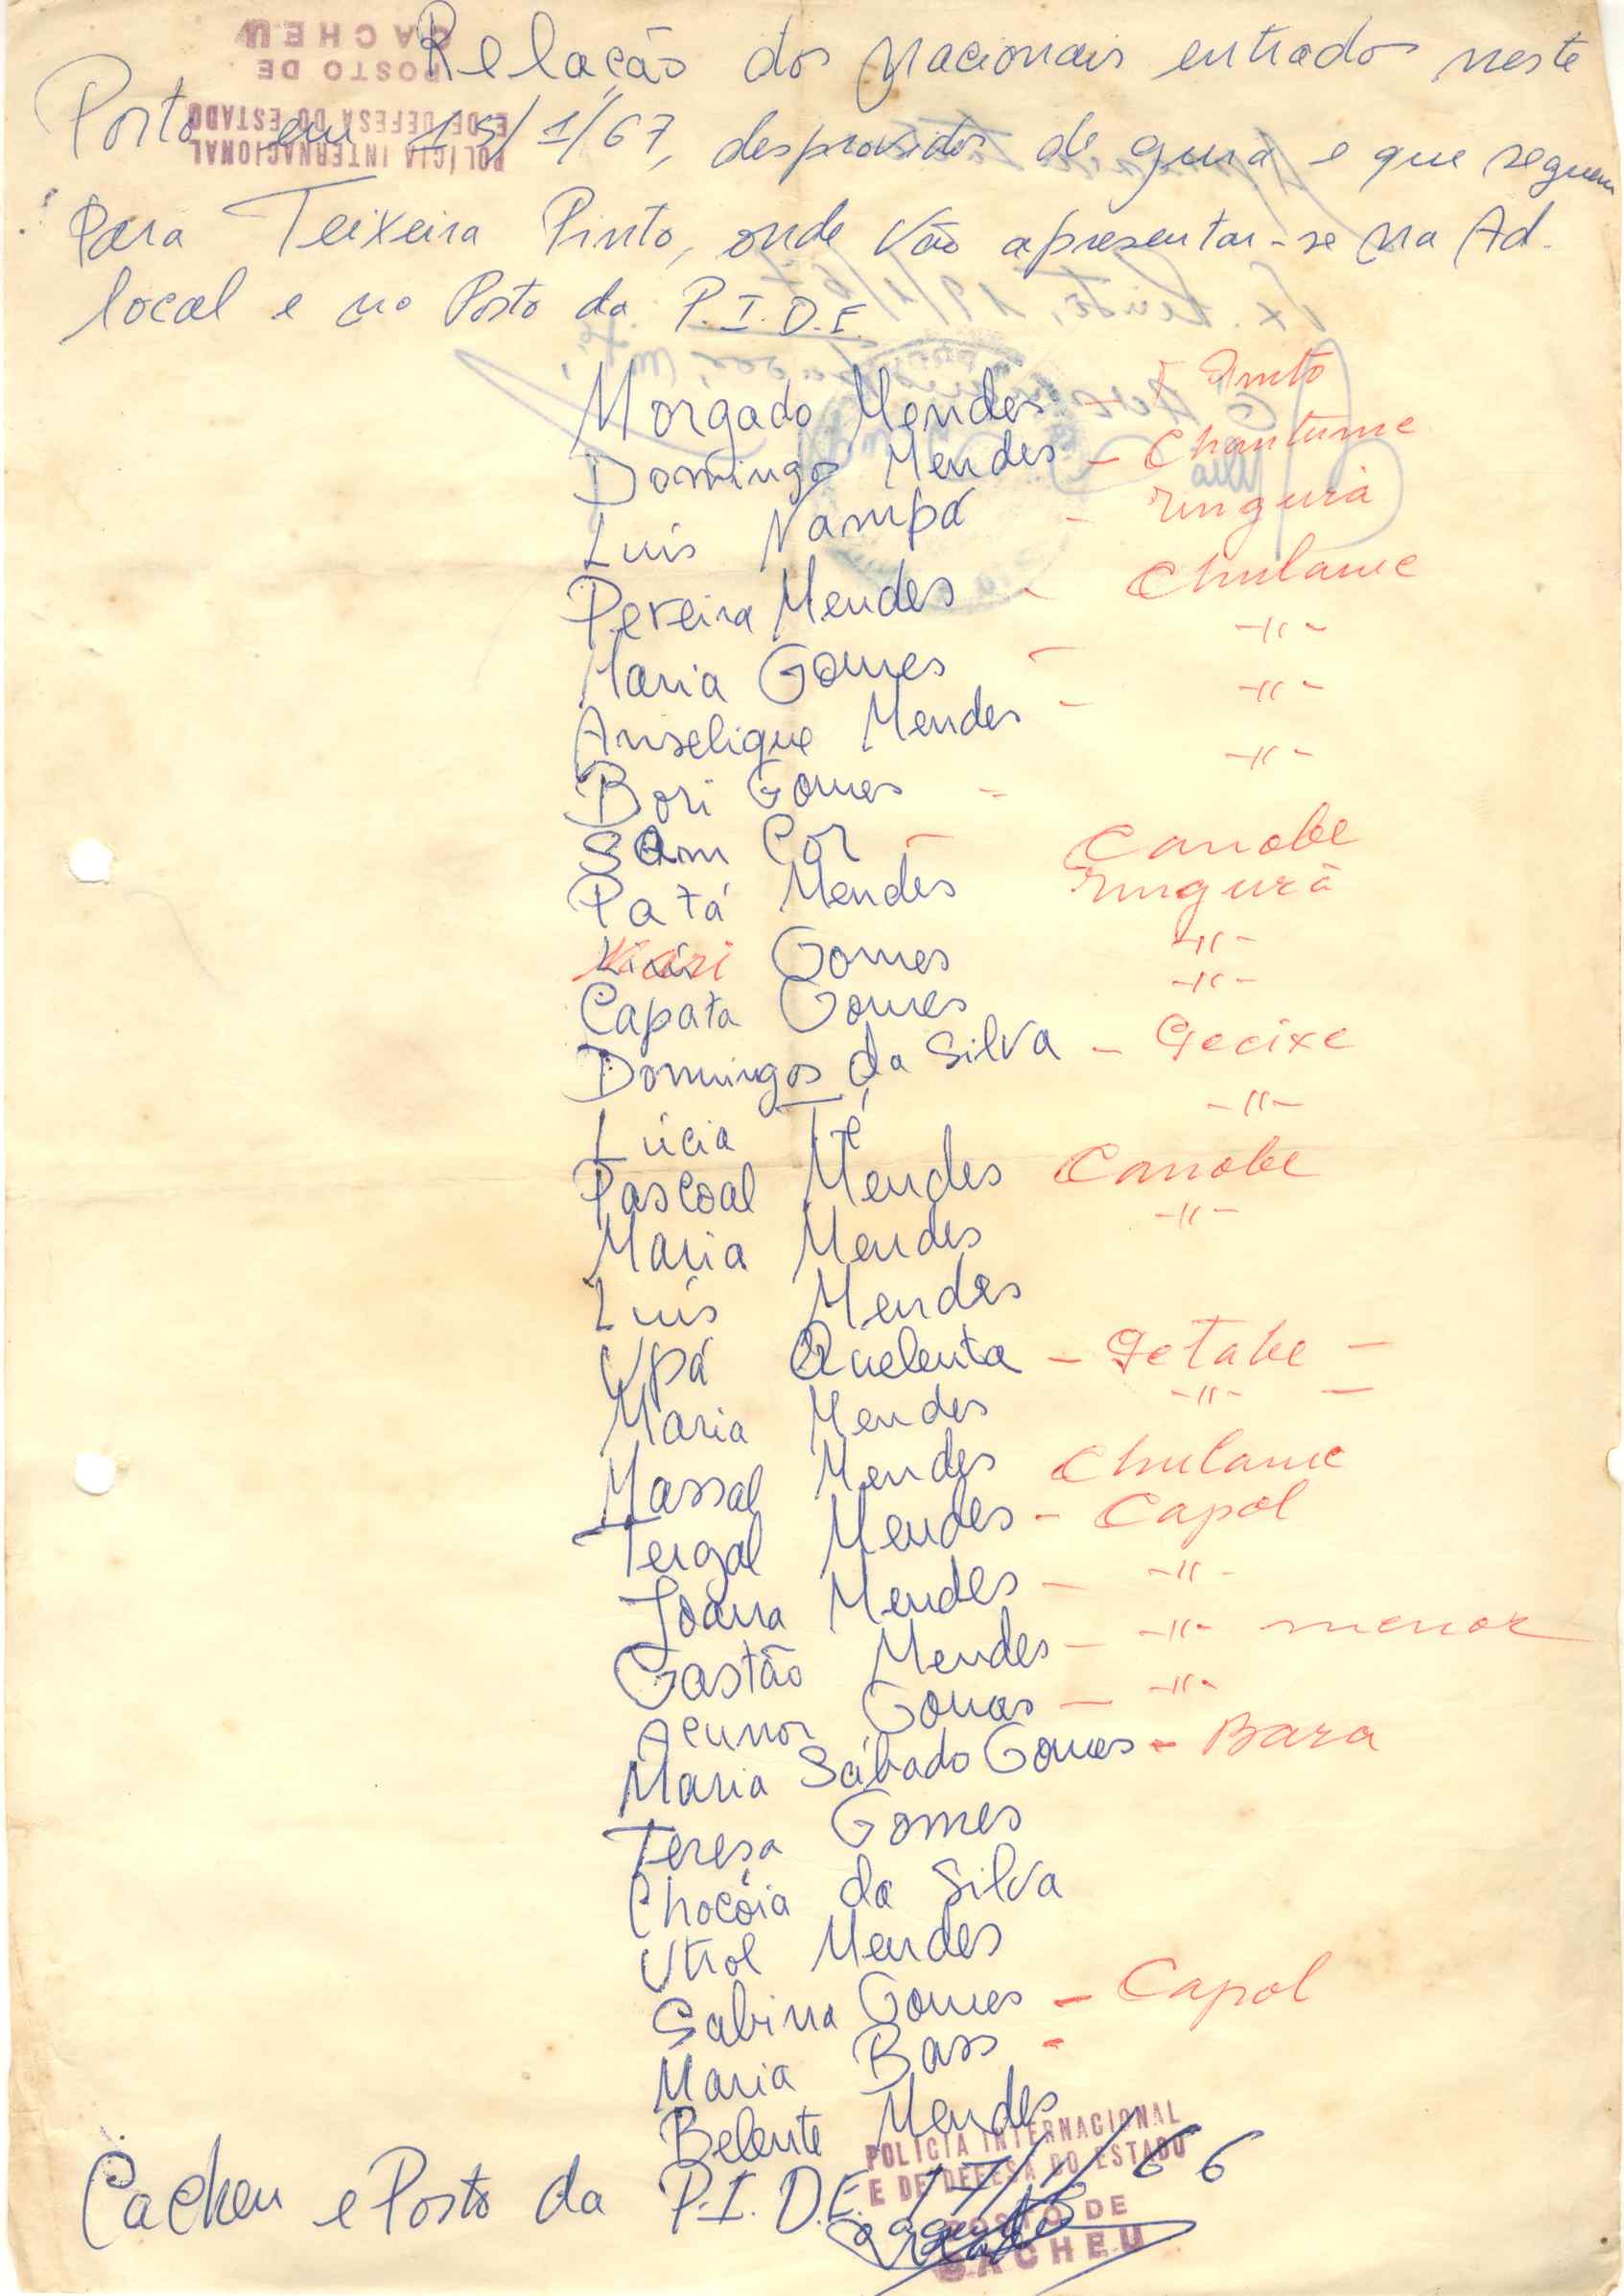 POLÍCIA INTERNACIONAL
E DE DEFESA DO ESTADO
POSTO DE
CACHEU
Relação dos nacionais entrados neste
Posto em 15/1/67, desprovidos de guia e que seguem
para Teixeira Pinto, onde vão apresentar-se na Ad.
local e no Posto da P.I.D.E.
Morgado Mendes - Pinto
Domingos Mendes - Chantume
Luis Nampá -
Pereira Mendes - Chulame
Maria Gomes - -"-
Anselique Mendes - -"-
Bori Gomes - -"-
Sam Cor - Canobe
Patá Mendes
Gomes -"-
Capata Gomes -"-
Domingos da Silva - Gecixe
Lúcia Té -"-
Pascoal Mendes Canobe
Maria Mendes -"-
Luis Mendes
Upá Quelenta - Getabe -
Maria Mendes -"- -
Massal Mendes Chulame
Tergal Mendes - Capol
Joana Mendes - -"-
Gastão Mendes - -"- menor
Acunor Gomes - -"-
Maria Sábado Gomes - Bara
Teresa Gomes
Chocóia da Silva
Utrol Mendes
Sabina Gomes - Capol
Maria Bass -
Belente Mendes
Cacheu e Posto da P.I.D.E. 17/1/66
POLÍCIA INTERNACIONAL
E DE DEFESA DO ESTADO
POSTO DE
CACHEU